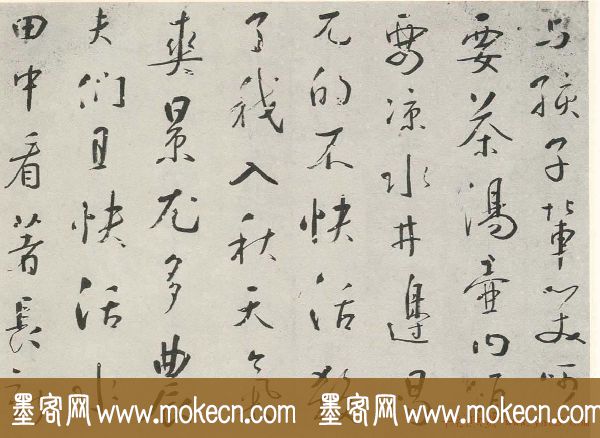 与孩子輩
要茶湯壺内
要凉水井邊
兀的不快活殺
了我入秋天氣
爽景尤多農
夫們且快活
田中看著長
墨客网 www.mokecn.com 墨客网 www.mokecn.com